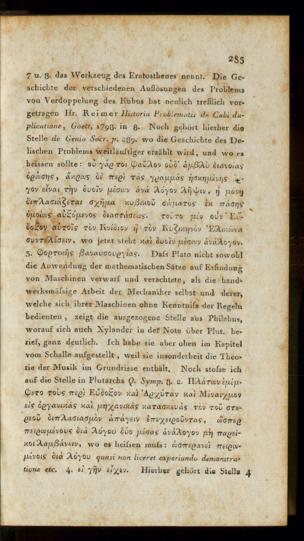 285
7 u. 8. das Werkzeug des Eratosthenes nennt. Die Ge-
schichte der verschiedenen Auflösungen des Problems
von Verdoppelung des Kubus hat neulich trefflich vor-
getragen Hr. Reimer Historia Problematis de Cubi du-
plicatione, Goett. 1798. in 8. Noch gehört hierher die
Stelle de Genio Socr. p. 289. wo die Geschichte des De-
lischen Problems weitläuftiger erzählt wird, und wo es
heissen sollte: οὐ γάρ τοι φαῦλον οὐδ' ἀμβλὺ διανοίας
ὁράσης, ἄκρως δὲ περὶ τὰς γραμμὰς ἠσκημένης
γον εἶναι τὴν δυοῖν μέσων ἀνὰ λόγον λῆψιν, ᾗ μόνῃ
διπλασιάζεται σχῆμα κυβικοῦ σώματος ἐκ πάσης
ὁμοίως αὐξόμενος διαστάσεως. τοῦτο μὲν οὖν Εὔ-
δοξον αὐτοῖς τὸν Κνίδιον ἢ τὸν Κυζικηνὸν Ἑλίκωνα
συντελέσειν. wo jetzt steht καὶ δυοῖν μέσων ἀνάλογον.
3. Φορτικῆς βαναυσουργίας. Dafs Plato nicht sowohl
die Anwendung der mathematischen Sätze auf Erfindung
von Maschinen verwarf und verachtete, als die hand-
werksmäfsige Arbeit der Mechaniker selbst und derer,
welche sich ihrer Maschinen ohne Kenntnifs der Regeln
bedienten, zeigt die ausgezogene Stelle aus Philebus,
worauf sich auch Xylander in der Note über Plut. be-
rief, ganz deutlich. Ich habe sie aber oben im Kapitel
vom Schalle aufgestellt, weil sie insonderheit die Theo-
rie der Musik im Grundrisse enthält. Noch stofse ich
auf die Stelle in Plutarchs Q. Symp. 8. 2. Πλάτων ἐμέμ-
ψατο τοὺς περὶ Εὔδοξον καὶ Ἀρχύταν καὶ Μέναιχμον
εἰς ὀργανικὰς καὶ μηχανικὰς κατασκευὰς τὸν τοῦ στε-
ρεοῦ διπλασιασμὸν ἀπάγειν ἐπιχειροῦντας, ὥσπερ
πειρωμένους διὰ λόγου δύο μέσας ἀνάλογον μὴ παρεί-
κοι λαμβάνειν, wo es heifsen mufs: ὥσπερανεὶ πειρω-
μένοις διὰ λόγου quasi non liceret experiundo demonstra-
tione etc. 4. εἰ γῆν εἶχεν. Hierher gehört die Stelle 4